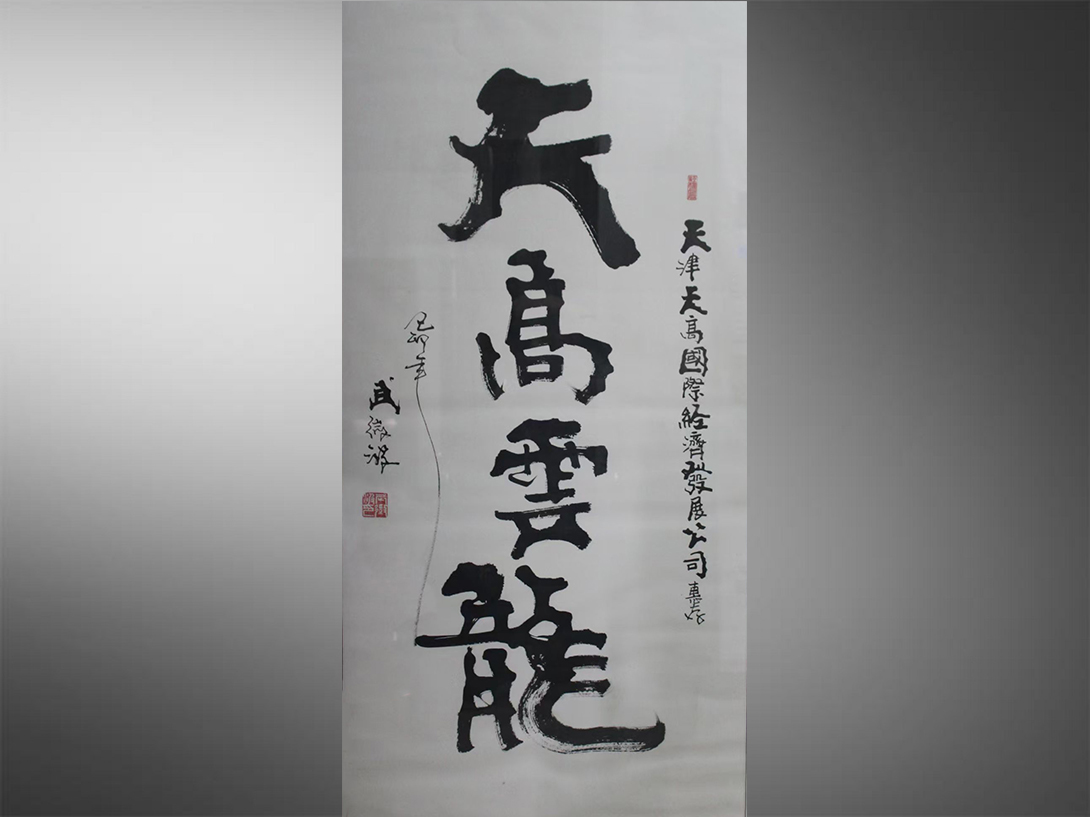 天津天高國際經濟發展公司惠存
天高雲龍
己卯年
武